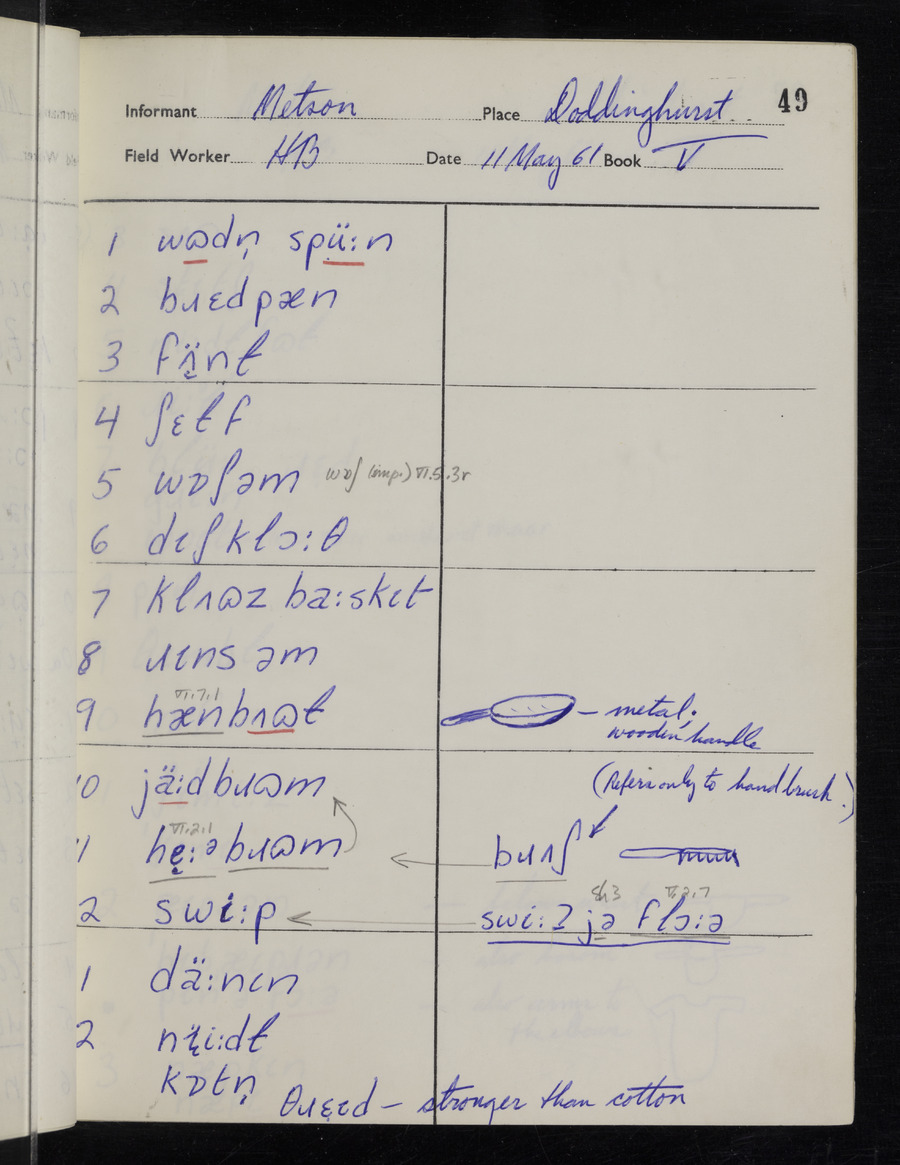 Informant Metson Place Doddinghurst 49
Field Worker HB Date 11 May 61 Book V
1 wɷdn̩ spü:n
2 bɹɛdpæn
3 fʌ̈nɫ
4 ʃɛɫf
5 wɒʃəm wɒʃ (imp.) VI.5.3r
6 dɩʃklɔ:θ
7 klʌɷz ba:skɩt
8 ɹɩns əm
VI.7.1
9 hænbʌɷɫ – metal;
wooden handle
10 jä:dbɹɷm (Refers only to handbrush.)
VI.2.1
11 hɛ̣:əbɹɷm bɹʌʃ
§h3 VI.2.7
12 swi:p swi:ʔ jə flɔ:ə
1 dä:nɩn
2 nɪ̈i:dɫ
kɒtn̩
θɹɛɩd – stronger than cotton